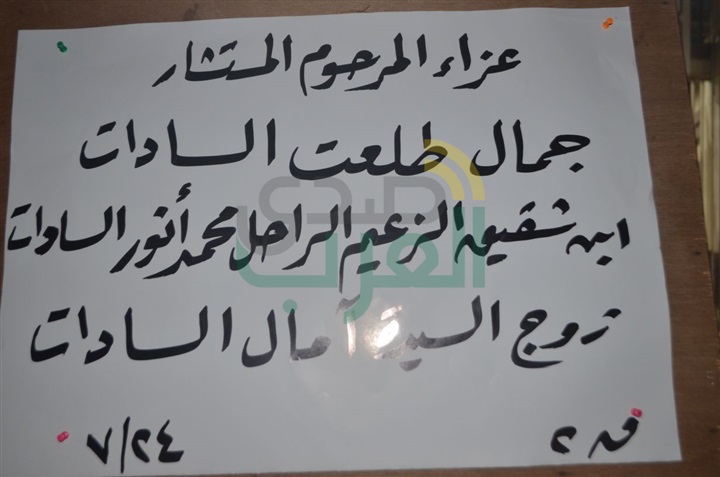 عزاء المرحوم المستشار
جمال طلعت السادات
ابن شقيق الزعيم الراحل محمد أنور السادات
زوج السيدة آمال السادات
ق ٢
٧/٢٤
صدى
العرب